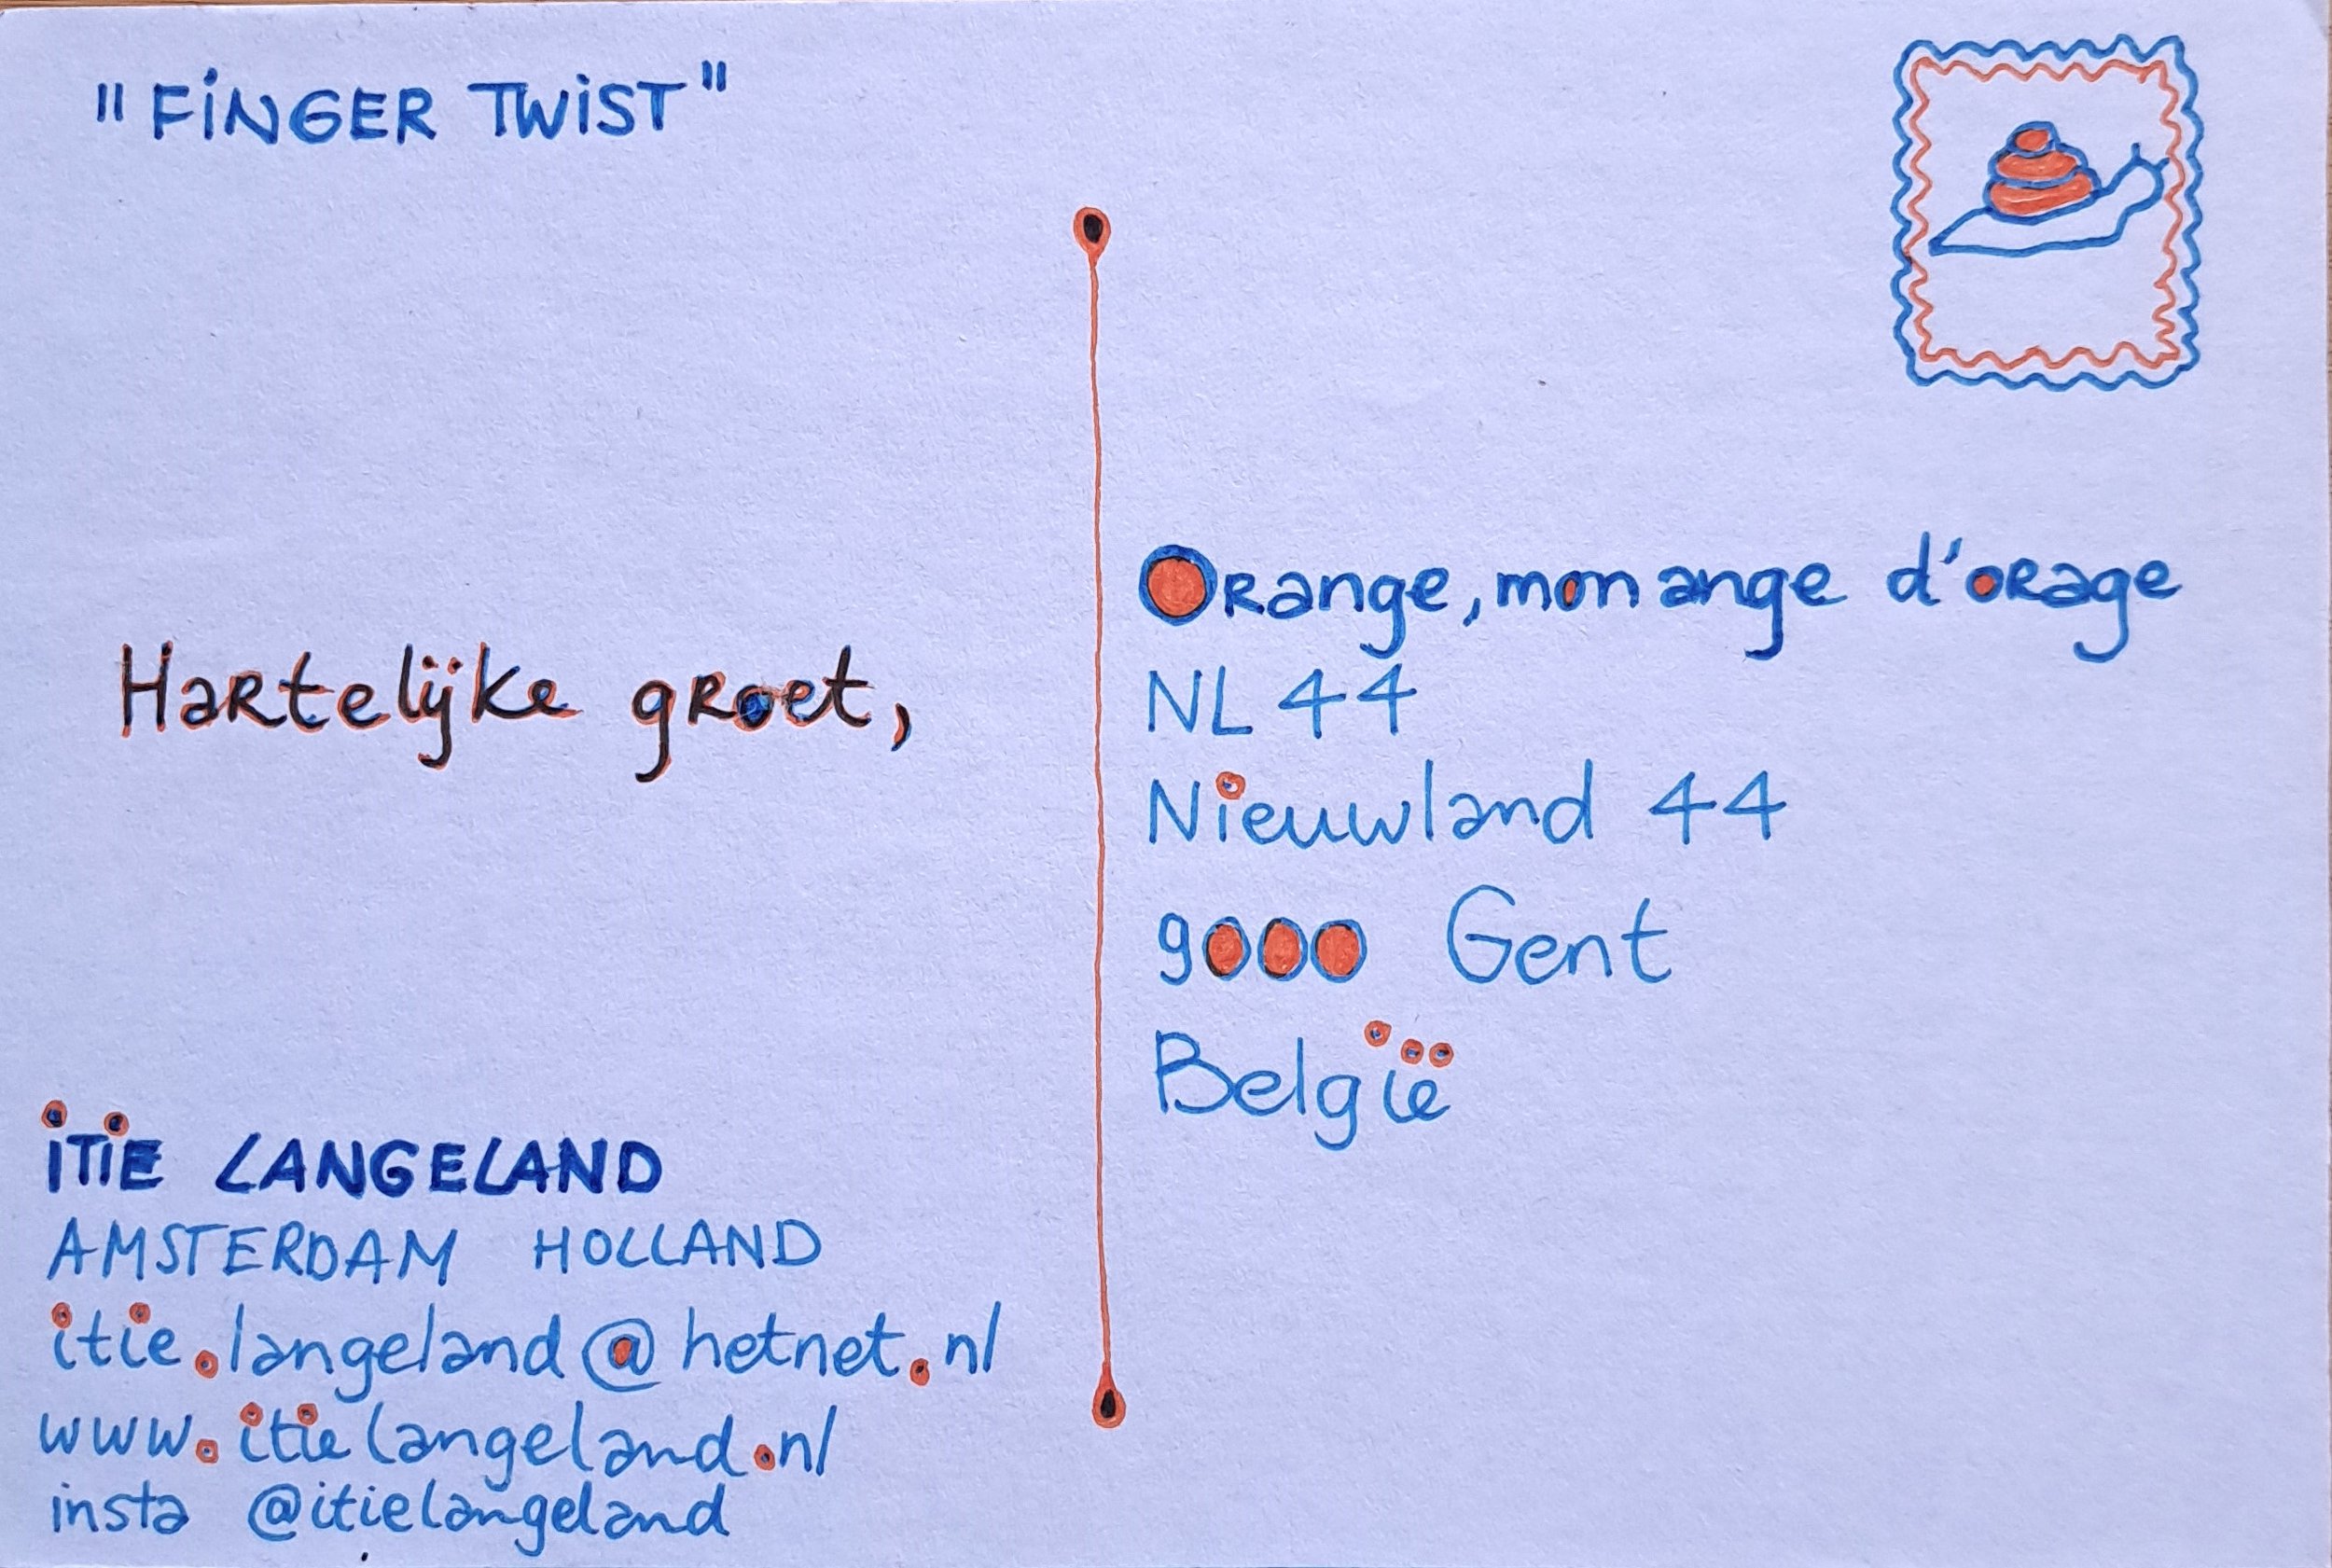 "FiNGER TWiST"
Hartelijke groet,
iTiE LANGELAND
AMSTERDAM HOLLAND
itie.langeland@hetnet.nl
www.itielangeland.nl
insta @itielangeland
Orange, mon ange d'orage
NL 44
Nieuwland 44
9000 Gent
België